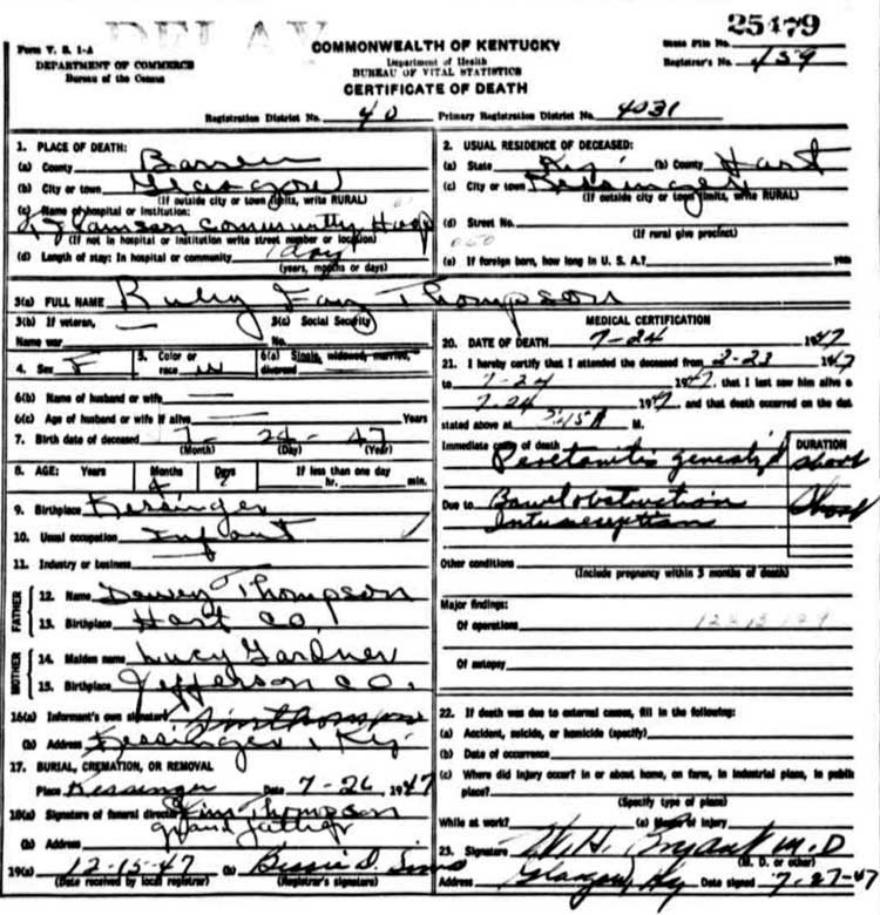 DELAY
25479
Form V. S. 1-A
DEPARTMENT OF COMMERCE
Bureau of the Census
COMMONWEALTH OF KENTUCKY
Department of Health
BUREAU OF VITAL STATISTICS
CERTIFICATE OF DEATH
State File No.
Registrar's No. 459
Registration District No. 40 Primary Registration District No. 4031
1. PLACE OF DEATH:
(a) County Barren
(b) City or town Glasgow
(If outside city or town limits, write RURAL)
(c) Name of hospital or institution:
T J Samson Community Hosp
(If not in hospital or institution write street number or location)
(d) Length of stay: In hospital or community 1 day
(years, months or days)
2. USUAL RESIDENCE OF DECEASED:
(a) State Ky. (b) County Hart
(c) City or town Kessinger
(If outside city or town limits, write RURAL)
(d) Street No.
(If rural give precinct)
(e) If foreign born, how long in U. S. A.? yrs
3(a) FULL NAME Ruby Fay Thompson
3(b) If veteran,
Name war
3(c) Social Security
No.
4. Sex F
5. Color or
race W
6(a) Single, widowed, married,
divorced
6(b) Name of husband or wife
6(c) Age of husband or wife if alive Years
7. Birth date of deceased 7- 24- 47
(Month) (Day) (Year)
8. AGE: Years Months Days If less than one day
4
hr. min.
9. Birthplace Kessinger
10. Usual occupation Infant
11. Industry or business
FATHER
12. Name Dewey Thompson
13. Birthplace Hart Co.
MOTHER
14. Maiden name Lucy Gardner
15. Birthplace Jefferson Co.
16(a) Informant's own signature Jim Thompson
(b) Address Kessinger, Ky.
17. BURIAL, CREMATION, OR REMOVAL
Place Kessinger Date 7-26, 1947
18(a) Signature of funeral director Jim Thompson
grand father
(b) Address
19(a) 12-15-47 (b) Bessie D. Sims
(Date received by local registrar) (Registrar's signature)
MEDICAL CERTIFICATION
20. DATE OF DEATH 7-24 1947
21. I hereby certify that I attended the deceased from 7-23 1947
to 7-24 1947, that I last saw him alive o
7.24 1947, and that death occurred on the dat
stated above at 3:15A M.
Immediate cause of death
Peretonitis generaliz'd
DURATION
short
Due to Bowel obstruction
Short
Intussception
Other conditions
(Include pregnancy within 3 months of death)
Major findings:
Of operations
Of autopsy
22. If death was due to external causes, fill in the following:
(a) Accident, suicide, or homicide (specify)
(b) Date of occurrence
(c) Where did injury occur? In or about home, on farm, in industrial place, in public
place?
(Specify type of place)
While at work? (e) Means of injury
23. Signature W. H. Bryant M. D
(M. D. or other)
Address Glasgow, Ky Date signed 7-27-47